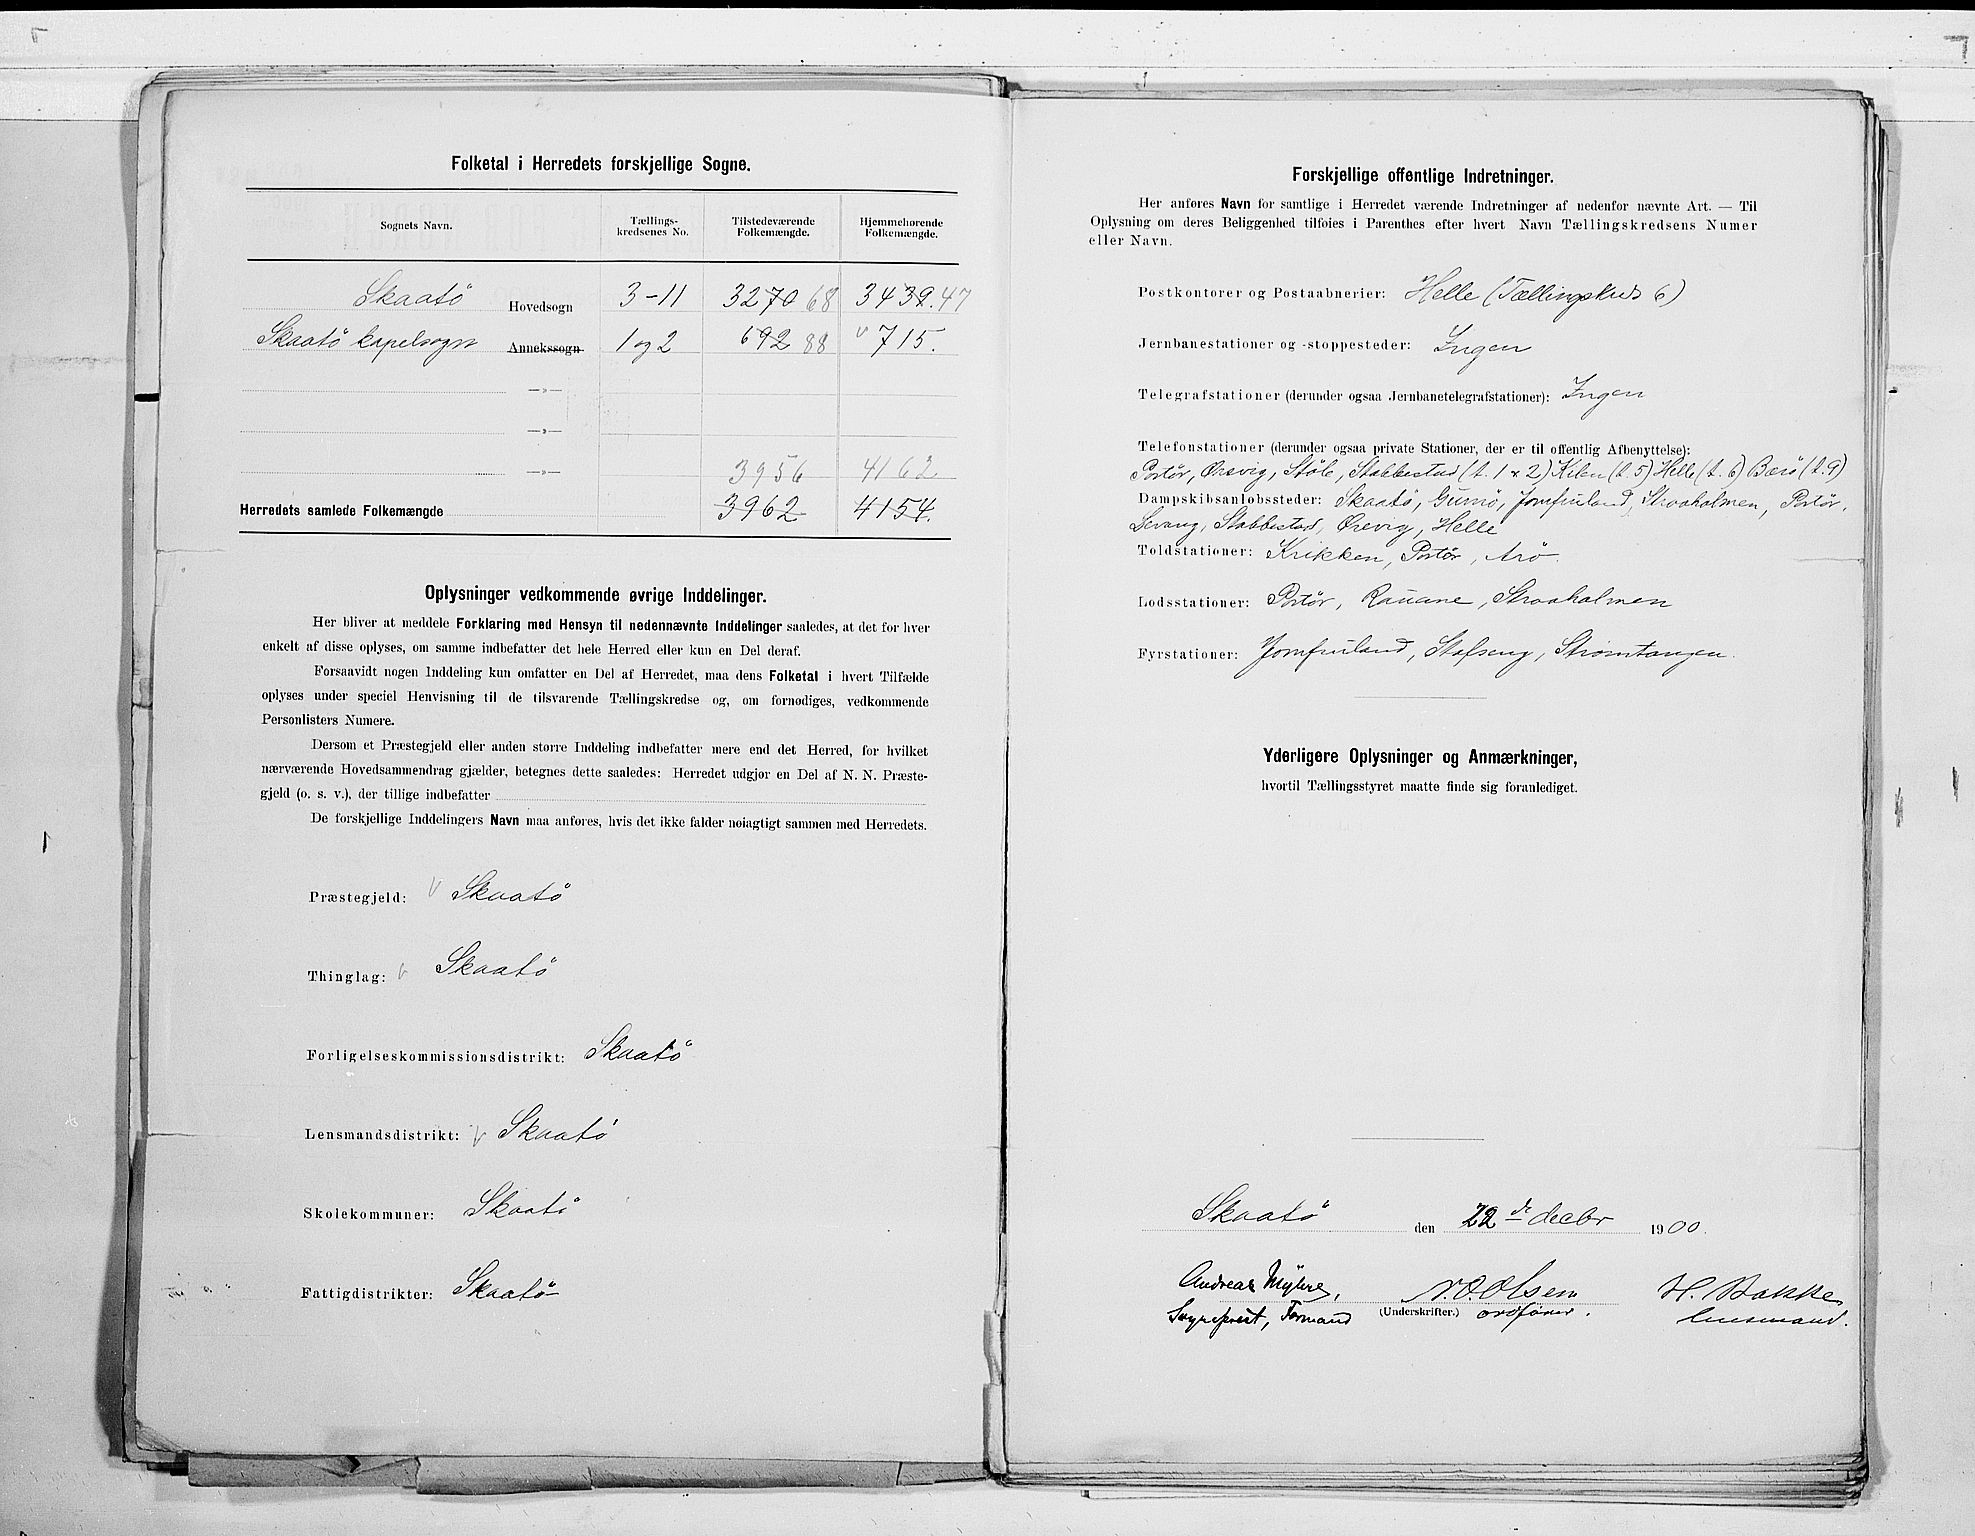 Folketal i Herredets forskjellige Sogne.
Sognets Navn. Tællings-kredsenes No. Tilstedeværende Folkemængde. Hjemmehørende Folkemængde.
Skaatö Hovedsogn 3-11 3270 68 3439. 47
Skaatö kapelsogn Annekssogn 1 og 2 692 88 v 715.
—»—
—»—
—»— 3956 4162
Herredets samlede Folkemængde 3962 4154.
Oplysninger vedkommende øvrige Inddelinger.
Her bliver at meddele Forklaring med Hensyn til nedennævnte Inddelinger saaledes, at det for hver
enkelt af disse oplyses, om samme indbefatter det hele Herred eller kun en Del deraf.
Forsaavidt nogen Inddeling kun omfatter en Del af Herredet, maa dens Folketal i hvert Tilfælde
oplyses under speciel Henvisning til de tilsvarende Tællingskredse og, om fornødiges, vedkommende
Personlisters Numere.
Dersom et Præstegjeld eller anden større Inddeling indbefatter mere end det Herred, for hvilket
nærværende Hovedsammendrag gjælder, betegnes dette saaledes: Herredet udgjør en Del af N. N. Præste-
gjeld (o. s. v.), der tillige indbefatter
De forskjellige Inddelingers Navn maa anføres, hvis det ikke falder nøiagtigt sammen med Herredets.
Præstegjeld: v Skaatö
Thinglag: v Skaatö
Forligelseskommissionsdistrikt: Skaatö
Lensmandsdistrikt: v Skaatö
Skolekommuner: Skaatö
Fattigdistrikter: Skaatö
Forskjellige offentlige Indretninger.
Her anføres Navn for samtlige i Herredet værende Indretninger af nedenfor nævnte Art. — Til
Oplysning om deres Beliggenhed tilføies i Parenthes efter hvert Navn Tællingskredsens Numer
eller Navn.
Postkontorer og Postaabnerier: Helle (Tællingskreds 6)
Jernbanestationer og -stoppesteder: Ingen
Telegrafstationer (derunder ogsaa Jernbanetelegrafstationer): Ingen
Telefonstationer (derunder ogsaa private Stationer, der er til offentlig Afbenyttelse):
Portör, Örevig, Stöle, Stabbestad (t. 1 & 2) Kilen (t. 5) Helle (t. 6) Bærö (t. 9)
Dampskibsanløbssteder: Skaatö, Gumö, Jomfruland, Straaholmen, Portör,
Levang, Stabbestad, Örevig, Helle
Toldstationer: Krikken, Portör, Arö.
Lodsstationer: Portör, Rauane, Straaholmen
Fyrstationer: Jomfruland, Stafseng, Strömtangen.
Yderligere Oplysninger og Anmærkninger,
hvortil Tællingsstyret maatte finde sig foranlediget.
Skaatö den 22de decbr 1900.
Andreas Myhre, N. O. Olsen H. Bakke
Sogneprest, Formand (Underskrifter.) ordfører. lensmand.